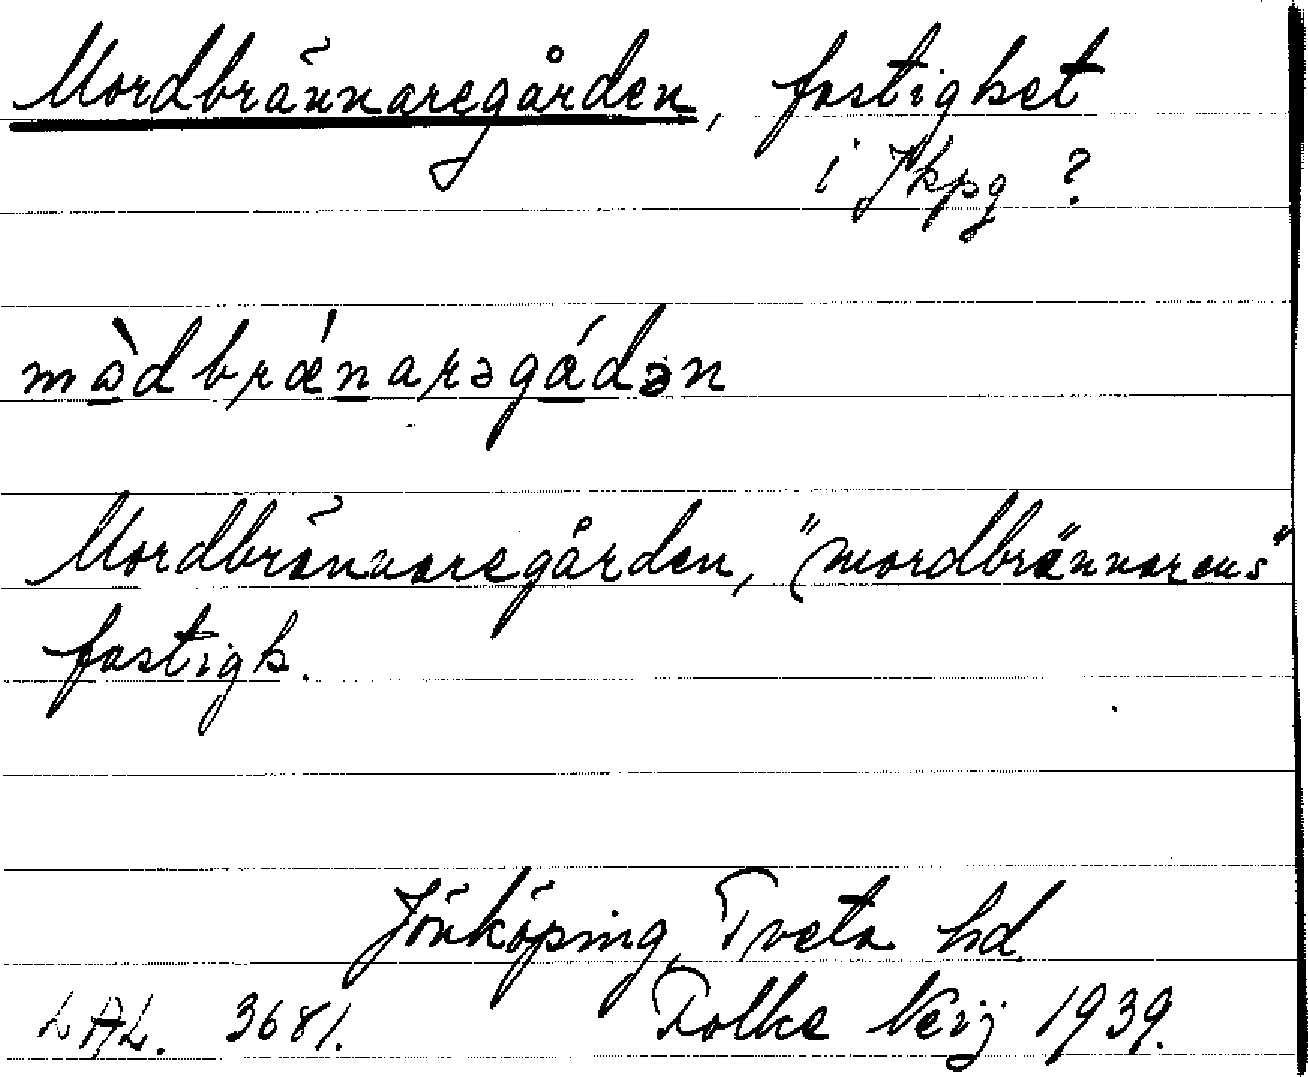 Mordbrännaregården, fastighet
i Jkpg ?
mòdbrǽnarəgádən
Mordbrännaregården, "mordbrännarens"
fastigh.
Jönköping, Tveta hd.
LAL. 3681. Folke Neij 1939.